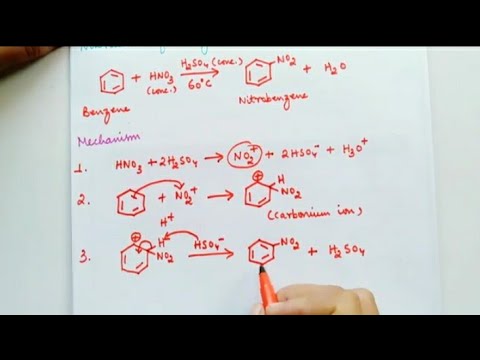 H2SO4 (conc.) NO2
+ HNO3 → + H2O
(conc.) 60°C
Benzene Nitrobenzene
Mechanism
1. HNO3 + 2H2SO4 → NO2+ + 2HSO4- + H3O+
2. + NO2+ → ⊕ H NO2
(carbonium ion)
H+
3. ⊕ H NO2 HSO4- → NO2 + H2SO4